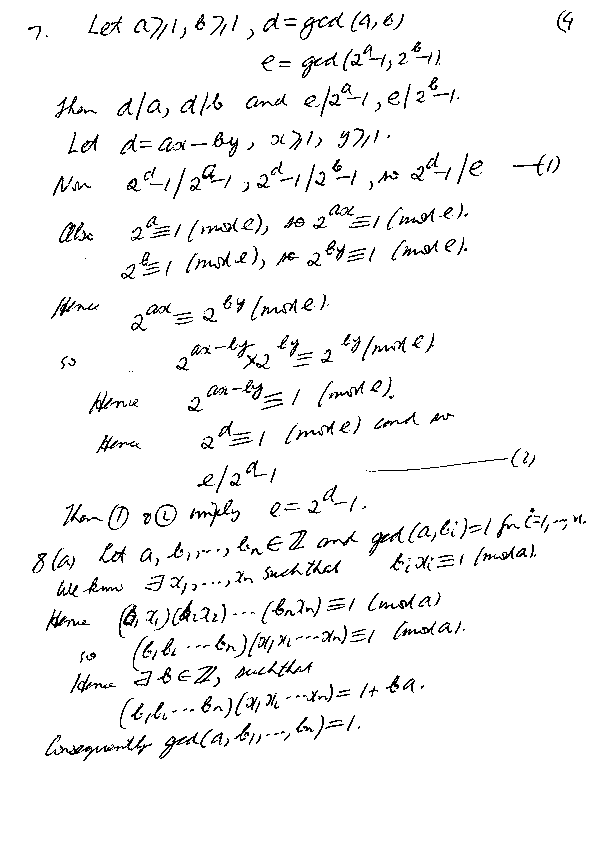 7. Let a⩾1, b⩾1, d=gcd(a,b) (4
e = gcd(2^a-1, 2^b-1)
Then d/a, d/b and e/2^a-1, e/2^b-1.
Let d=ax-by, x⩾1, y⩾1.
Now 2^d-1/2^a-1, 2^d-1/2^b-1, so 2^d-1/e —(1)
Also 2^a≡1 (mod e), so 2^{ax}≡1 (mod e).
2^b≡1 (mod e), so 2^{by}≡1 (mod e).
Hence 2^{ax} ≡ 2^{by} (mod e).
so 2^{ax-by}×2^{by} ≡ 2^{by} (mod e)
Hence 2^{ax-by} ≡ 1 (mod e).
Hence 2^d≡1 (mod e) and so
e/2^d-1 —(2)
Then ① & ② imply e=2^d-1.
8(a) Let a, b_1,..., b_n∈ℤ and gcd(a,b_i)=1 for i=1,..,n.
We know ∃x_1,...,x_n such that b_i x_i≡1 (mod a).
Hence (b_1x_1)(b_2x_2)...(b_nx_n)≡1 (mod a)
so (b_1b_2...b_n)(x_1x_2...x_n)≡1 (mod a).
Hence ∃b∈ℤ, such that
(b_1b_2...b_n)(x_1x_2...x_n)=1+ba.
Consequently gcd(a, b_1,...,b_n)=1.